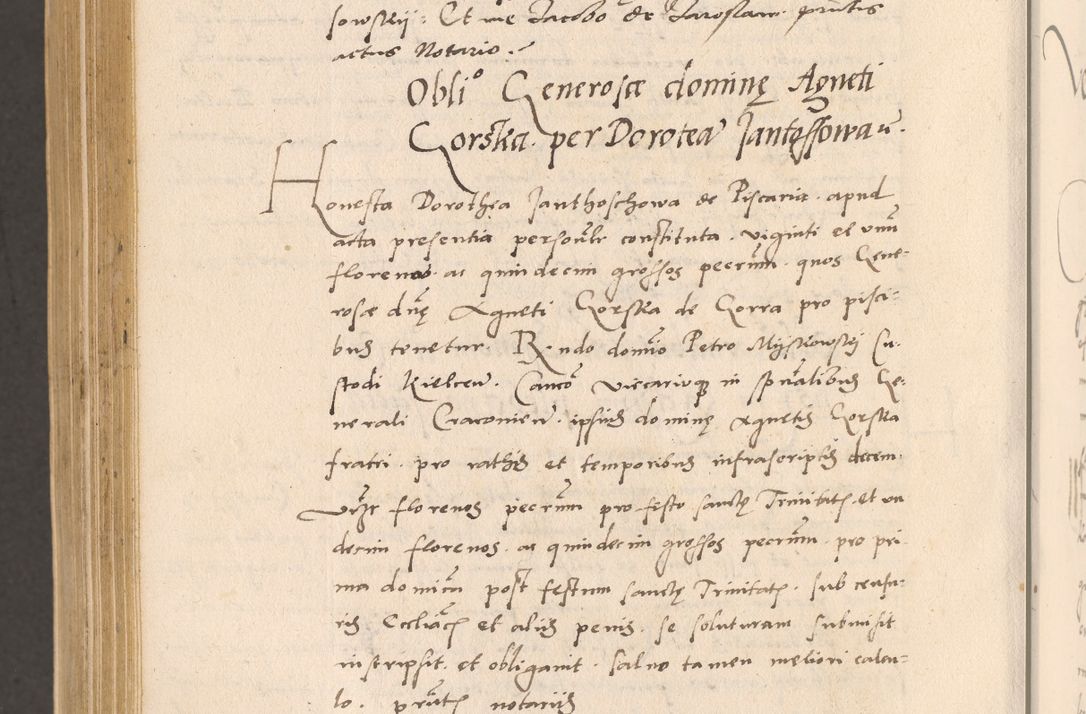 sowskij: Et me Jacobo de Jaroslaw. pntis
actus Notario.
Oblio Generosæ dominę Agneti
Gorska. per Dorotea Jantossowa
Honesta Dorothea Janthoschowa de Piscaria. apud
acta presentia personlr constituta. viginti et unu
florenos. ac quindecim grossos pecun. quos Gene-
rosæ dnę Agneti Gorska de Gorra pro pisci-
bus tenetur. Rndo domio Petro Myskowskij Cu-
stodi Kielcen. Canco Vicarioque in spualibus Ge-
nerali Cracovien. ipsius dominę Agnetis Gorska
fratri. pro rathis et temporibus infrascriptis decem
vizt florenos pecun pro festo sanctę Trinitatis. et un
decim florenos. ac quindecim grossos pecun. pro pri
ma domica post festum sanctę Trinitatis. sub censu-
ris Eccliacis et aliis penis. se soluturam submisit
inscripsit. et obligavit. salvo tamen meliori calcu-
lo. pntis notariis